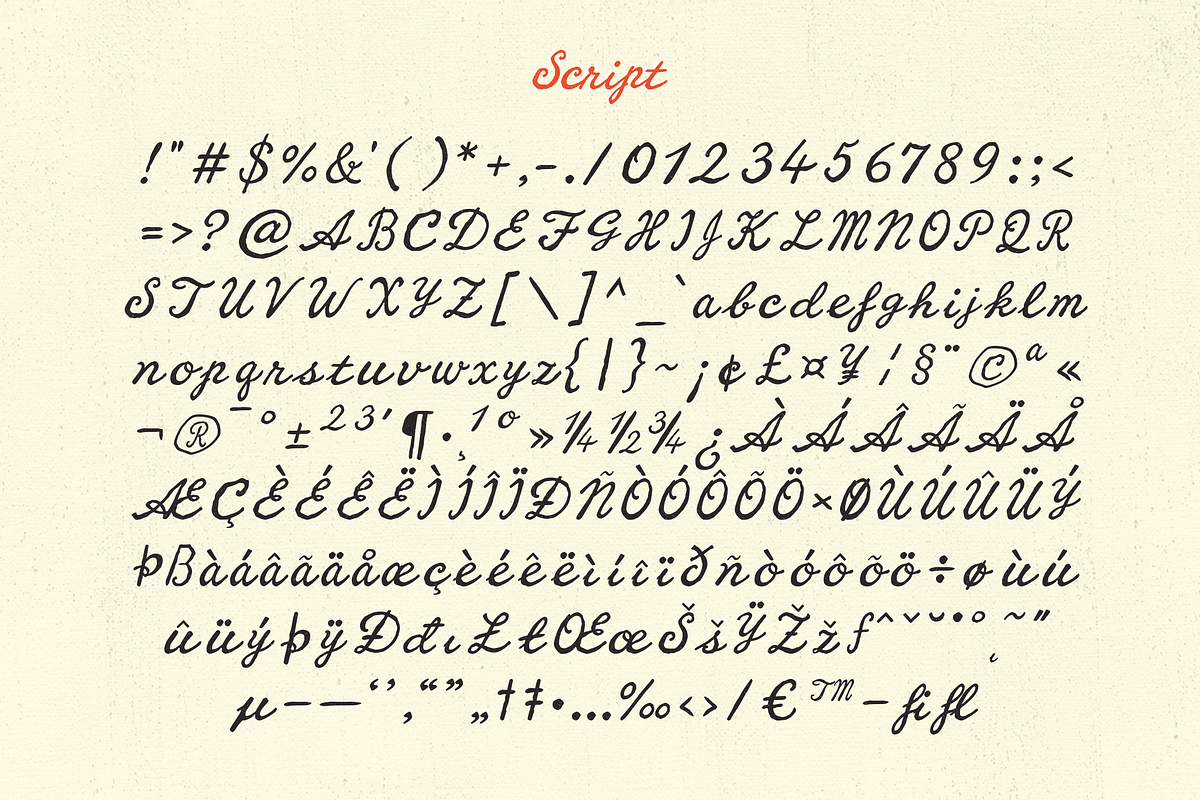 Script
!"#$%&'()*+,-./0123456789:;<
=>?@ABCDEFGHIJKLMNOPQR
STUVWXYZ[\]^_`abcdefghijklm
nopqrstuvwxyz{|}~¡¢£¤¥¦§¨©ª«
¬®¯°±²³´¶·¸¹º»¼½¾¿ÀÁÂÃÄÅ
ÆÇÈÉÊËÌÍÎÏÐÑÒÓÔÕÖ×ØÙÚÛÜÝ
Þßàáâãäåæçèéêëìíîïðñòóôõö÷øùú
ûüýþÿĐđıŁłŒœŠšŸŽžƒˆˇ˘˙˚˛˜˝
µ–—‘’‚“”„†‡•…‰‹›⁄€™−fifl